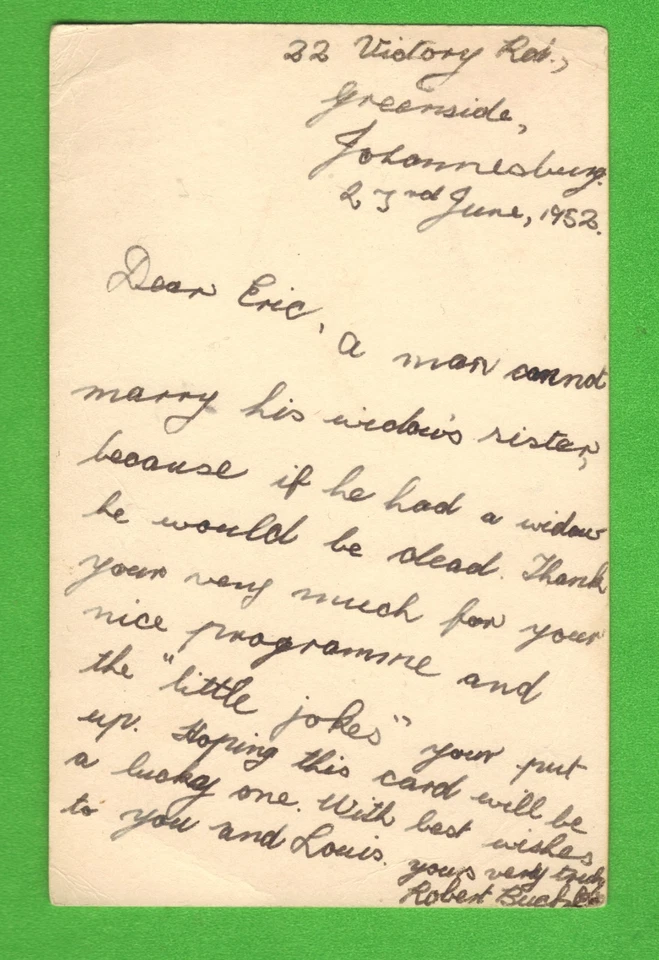 22 Victory Rd.,
Greenside,
Johannesburg.
23rd June, 1952.
Dear Eric,
A man cannot
marry his widow's sister,
because if he had a widow
he would be dead. Thank
your very much for your
nice programme and
the "little jokes" your put
up. Hoping this card will be
a lucky one. With best wishes
to you and Louis.
yours very truly
Robert